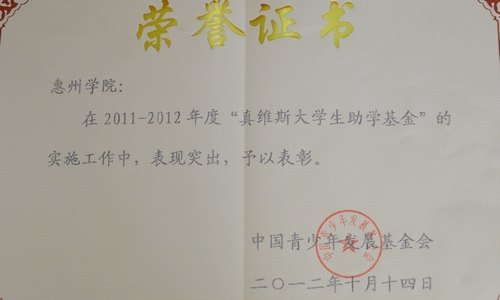 荣誉证书
惠州学院：
在2011-2012年度“真维斯大学生助学基金”的
实施工作中，表现突出，予以表彰。
中国青少年发展基金会
二〇一二年十月十四日